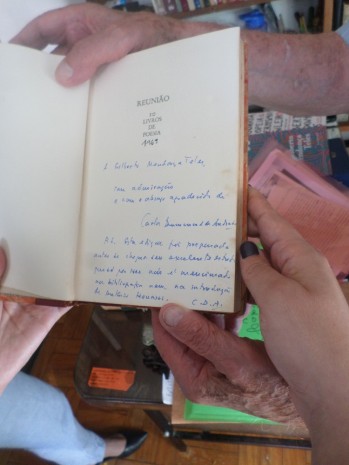 REUNIÃO
10
LIVROS
DE
POESIA
1969
A Gilberto Mendonça Teles,
com admiração
e com o abraço agradecido de
Carlos Drummond de Andrade
P.S. Esta edição foi preparada
antes de chegar seu
por isso não é mencionado
na bibliografia nem na introdução
de
C.D.A.